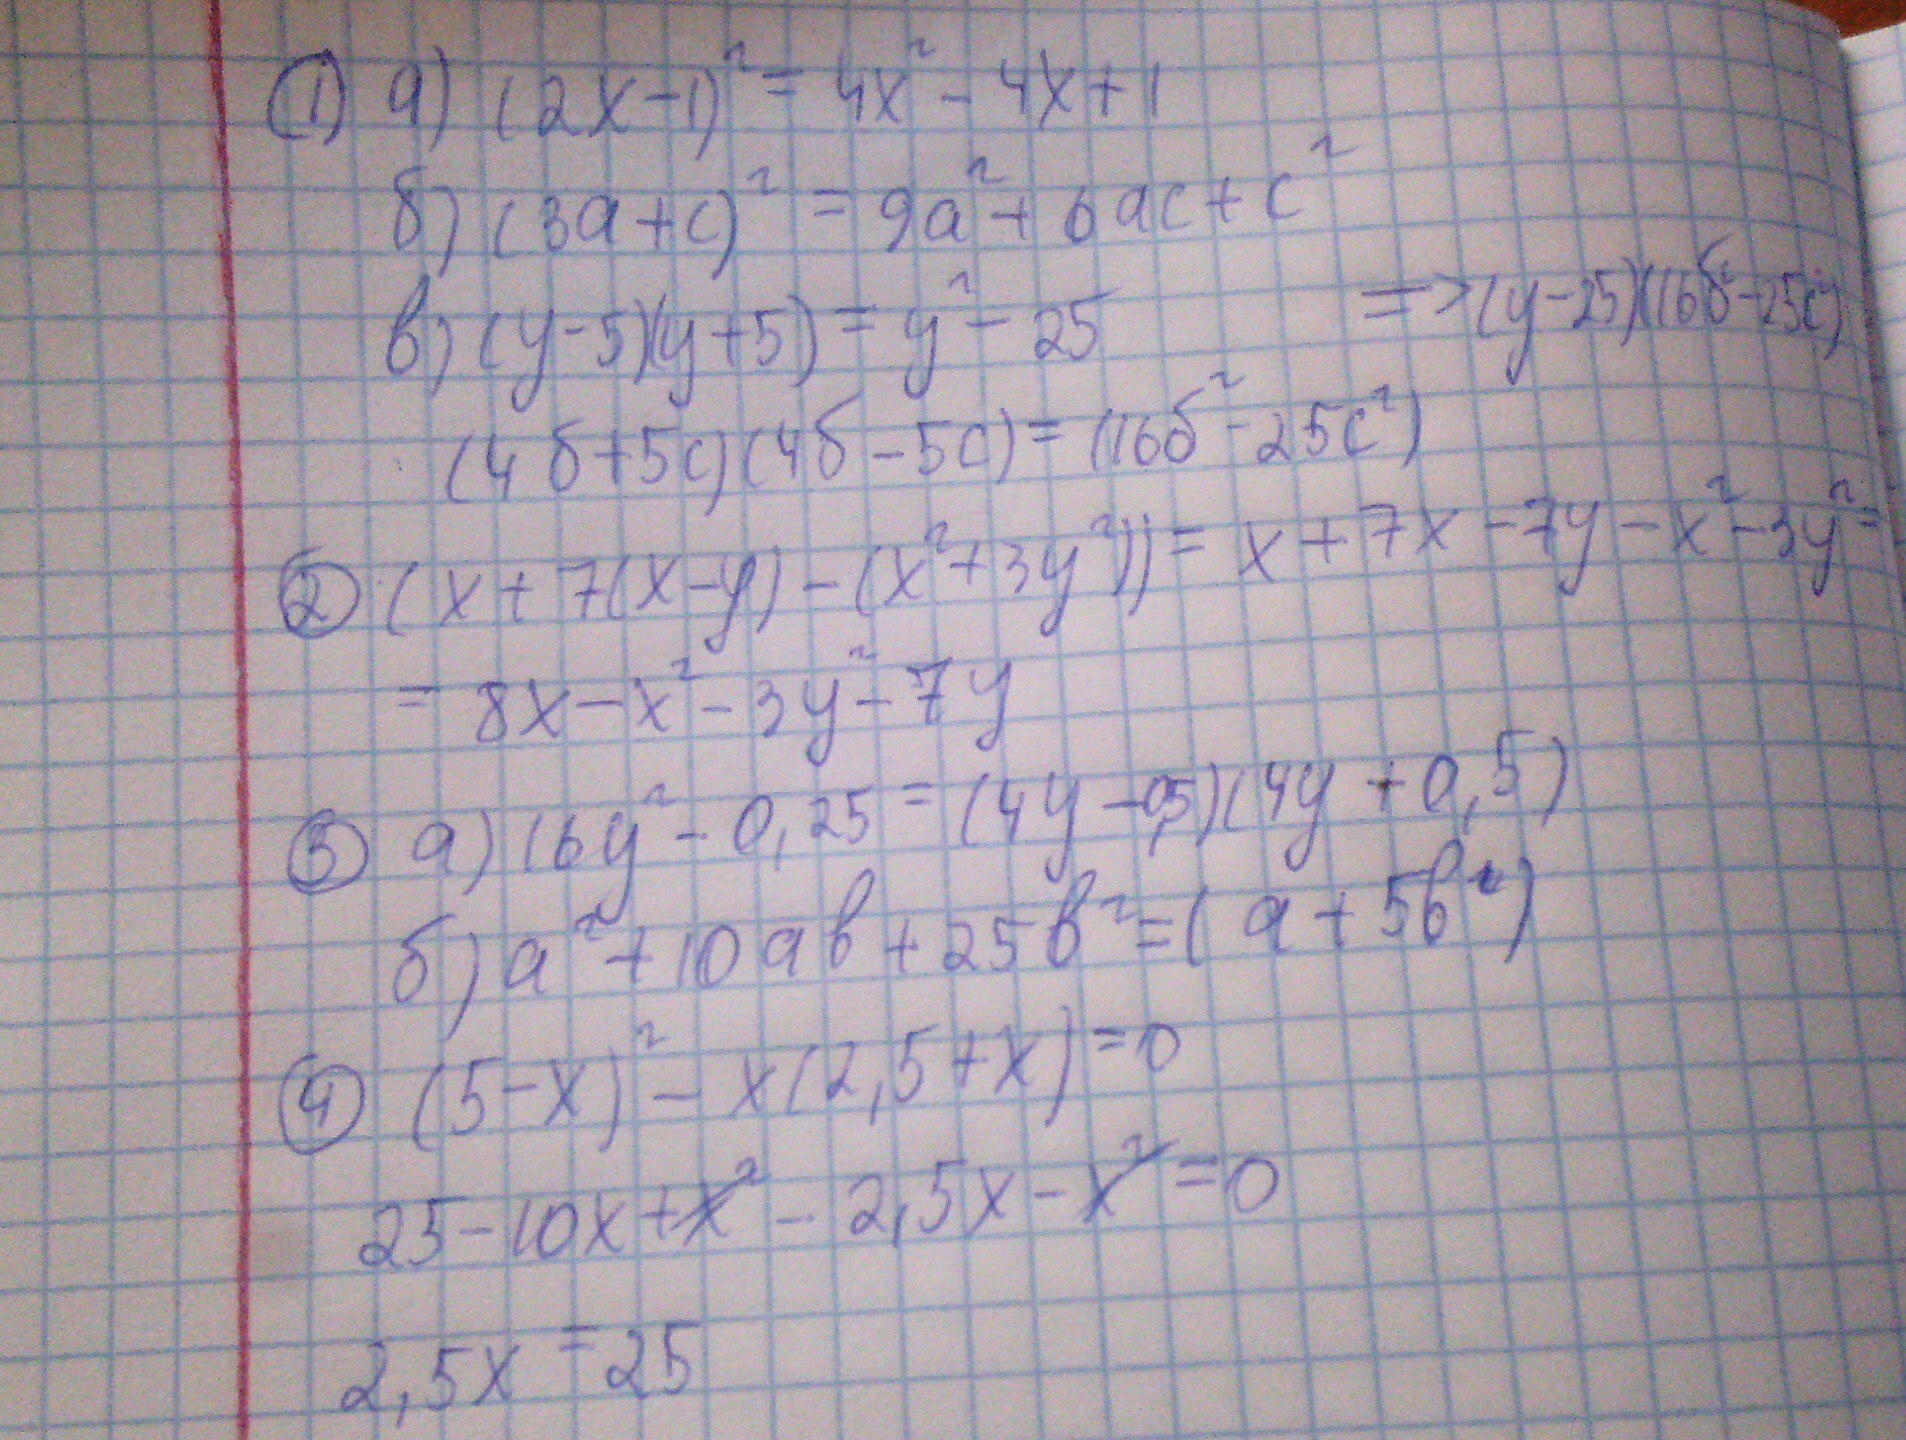 ① а) (2x-1)² = 4x² - 4x + 1
б) (3a+c)² = 9a² + 6ac + c²
в) (y-5)(y+5) = y² - 25 => (y-25)(16б²-25c²)
(4б+5c)(4б-5c) = (16б²-25c²)
② (x + 7(x-y) - (x²+3y²)) = x + 7x - 7y - x² - 3y² =
= 8x - x² - 3y² - 7y
③ а) 16y² - 0,25 = (4y - 0,5)(4y + 0,5)
б) a² + 10ab + 25b² = (a + 5b²)
④ (5-x)² - x(2,5+x) = 0
25 - 10x + x² - 2,5x - x² = 0
2,5x = 25